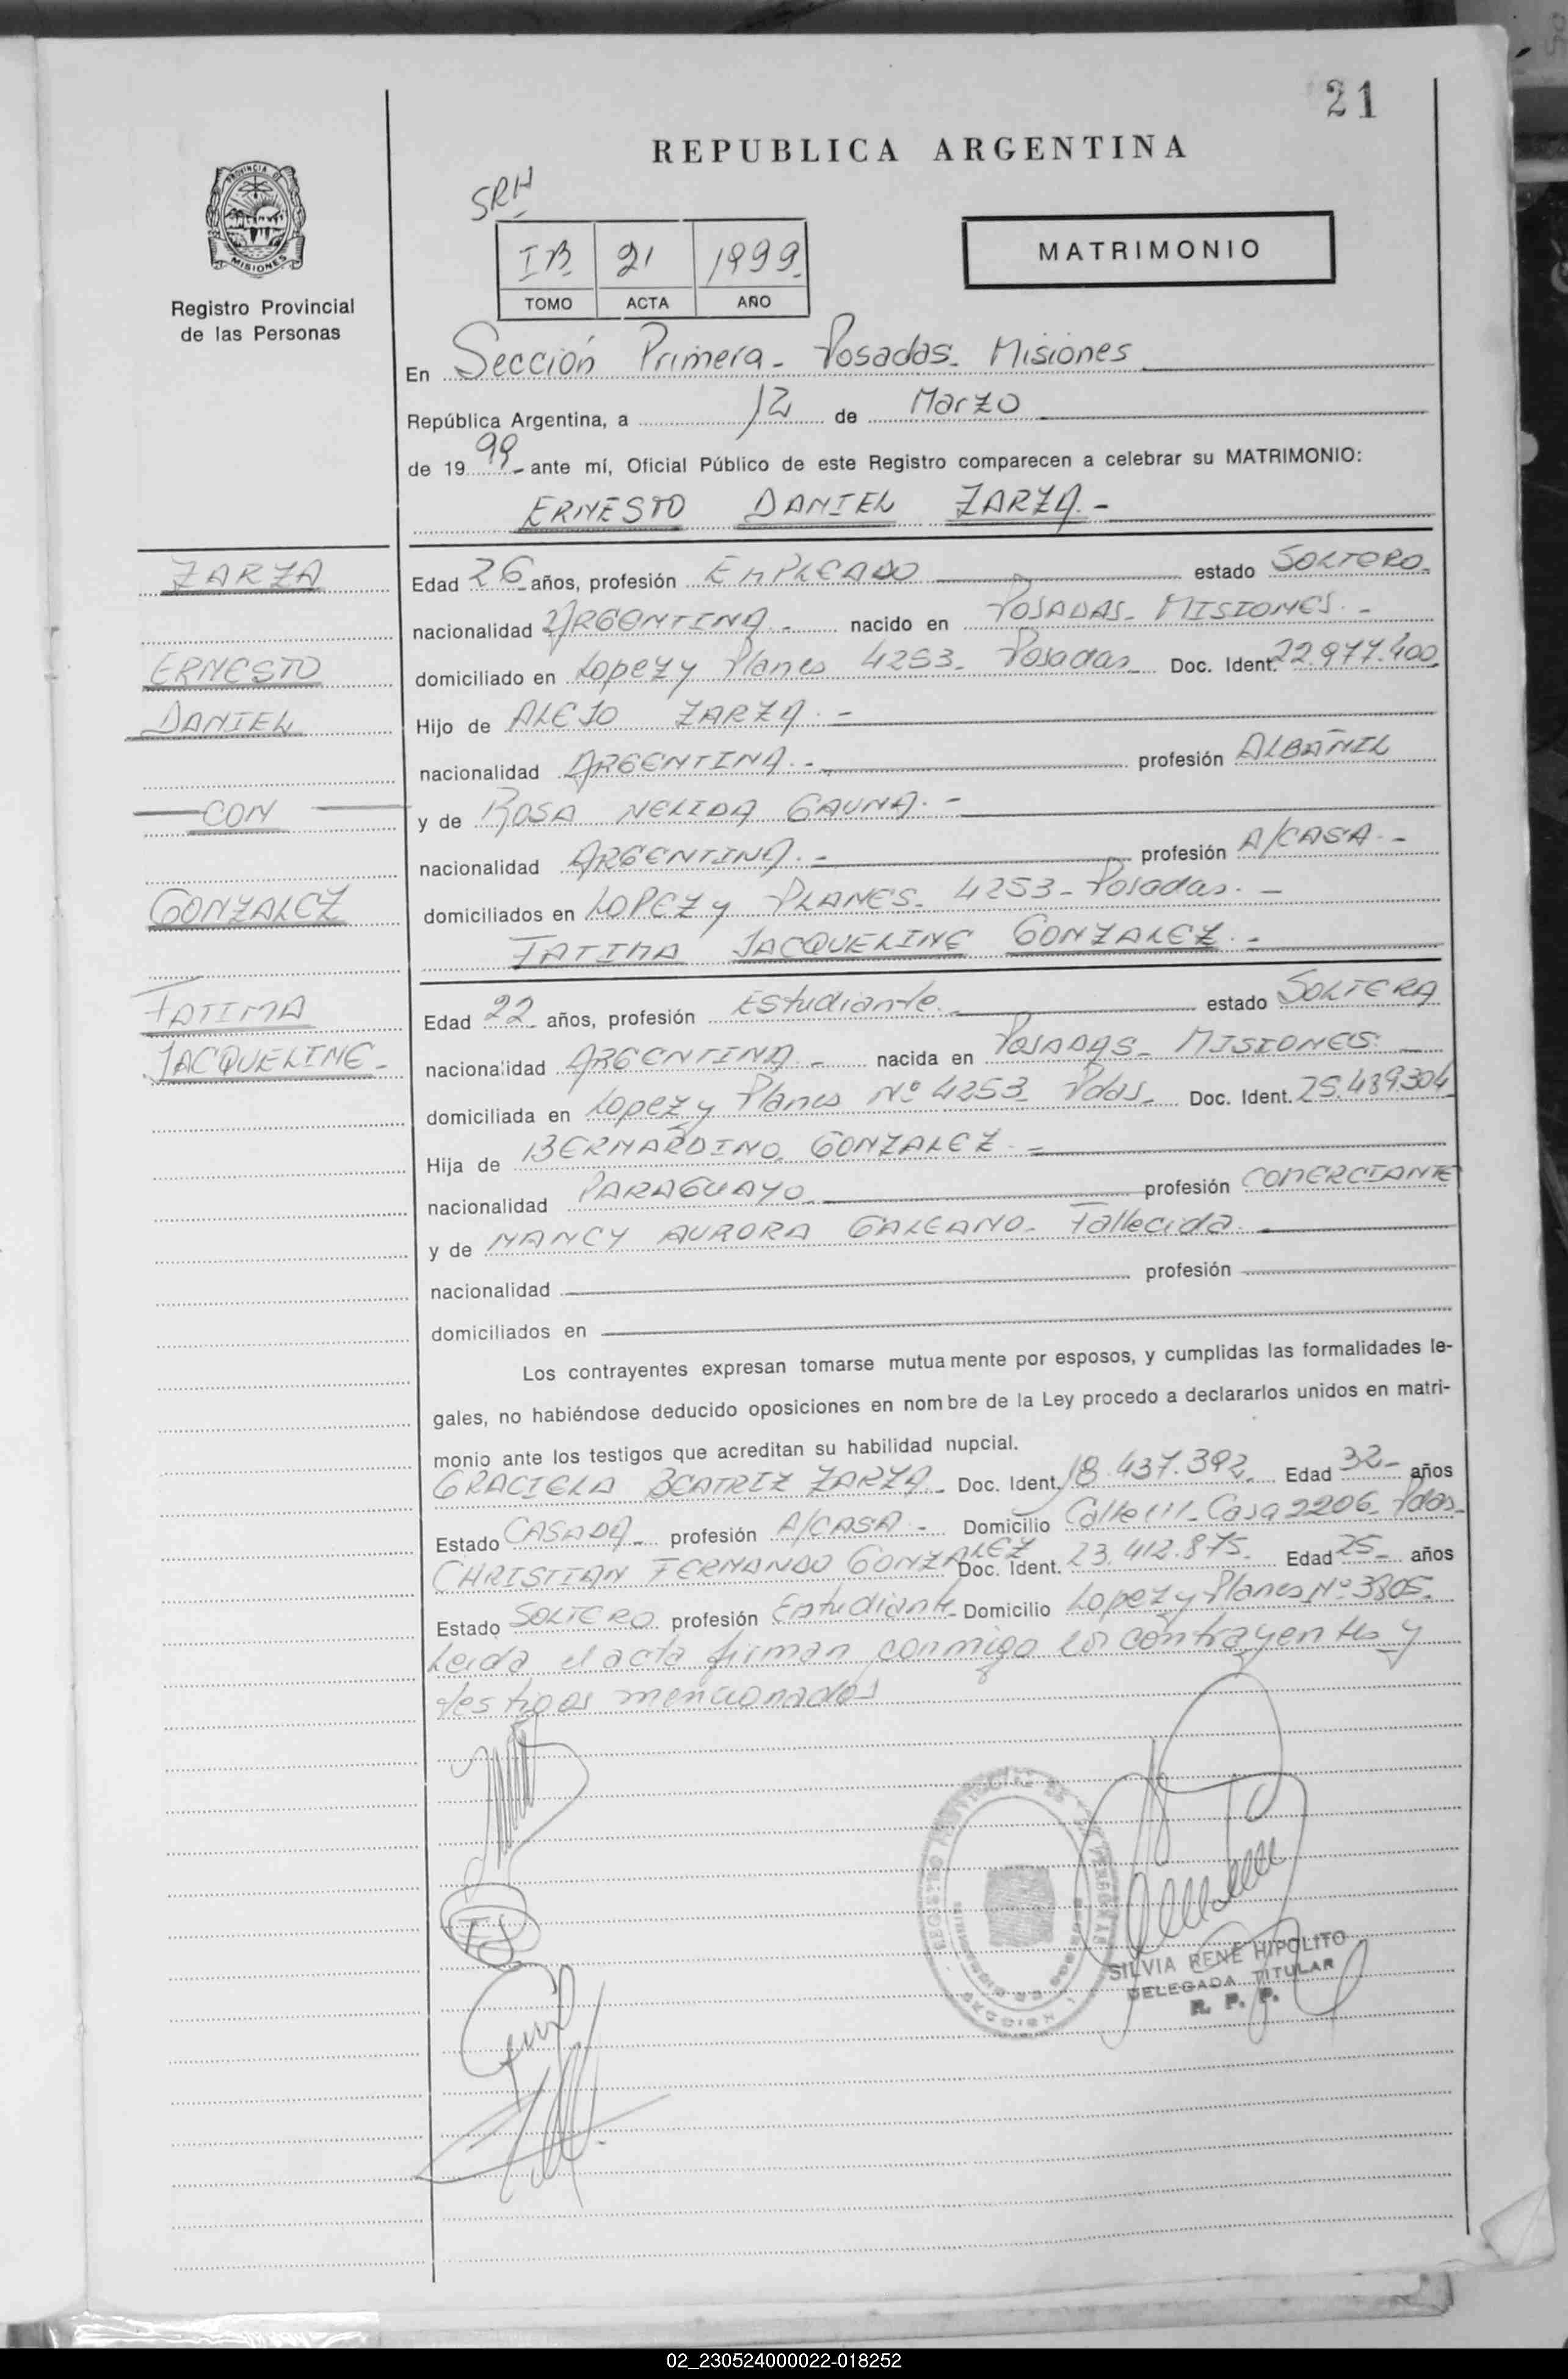 21
REPUBLICA ARGENTINA
SRH
IB 21 1999
TOMO ACTA AÑO
MATRIMONIO
PROVINCIA DE
MISIONES
Registro Provincial
de las Personas
En Sección Primera - Posadas - Misiones
República Argentina, a 12 de Marzo
de 1999 - ante mí, Oficial Público de este Registro comparecen a celebrar su MATRIMONIO:
ERNESTO DANIEL ZARZA. -
ZARZA
ERNESTO
DANIEL
CON
GONZALEZ
FATIMA
JACQUELINE -
Edad 26 años, profesión EMPLEADO estado SOLTERO.
nacionalidad ARGENTINA. - nacido en POSADAS - MISIONES. -
domiciliado en Lopez y Planes 4253 - Posadas Doc. Ident. 22.977.400
Hijo de ALEJO ZARZA. -
nacionalidad ARGENTINA. - profesión ALBAÑIL
y de ROSA NELIDA GAUNA. -
nacionalidad ARGENTINA. - profesión A/CASA. -
domiciliados en LOPEZ y PLANES - 4253 - Posadas. -
FATIMA JACQUELINE GONZALEZ. -
Edad 22 años, profesión Estudiante. estado SOLTERA
nacionalidad ARGENTINA - nacida en POSADAS - MISIONES. -
domiciliada en Lopez y Planes Nº 4253 Pdas. Doc. Ident. 25.489.304
Hija de BERNARDINO GONZALEZ. -
nacionalidad PARAGUAYO profesión COMERCIANTE
y de NANCY AURORA GALEANO - Fallecida.
nacionalidad profesión
domiciliados en
Los contrayentes expresan tomarse mutuamente por esposos, y cumplidas las formalidades le-
gales, no habiéndose deducido oposiciones en nombre de la Ley procedo a declararlos unidos en matri-
monio ante los testigos que acreditan su habilidad nupcial.
GRACIELA BEATRIZ ZARZA - Doc. Ident. 18.437.392 Edad 32 - años
Estado CASADA profesión A/CASA - Domicilio Calle 111 - Casa 2206 - Pdas -
CHRISTIAN FERNANDO GONZALEZ Doc. Ident. 23.412.875. Edad 25 - años
Estado SOLTERO profesión Estudiante Domicilio Lopez y Planes Nº 3805.
Leida el acta firman conmigo los contrayentes y
testigos mencionados
SILVIA RENE HIPOLITO
DELEGADA TITULAR
R. P. P.
02_230524000022-018252